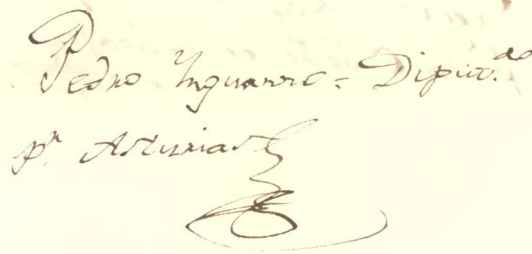 Pedro Inguanzo = Diput.do
pr. Asturias